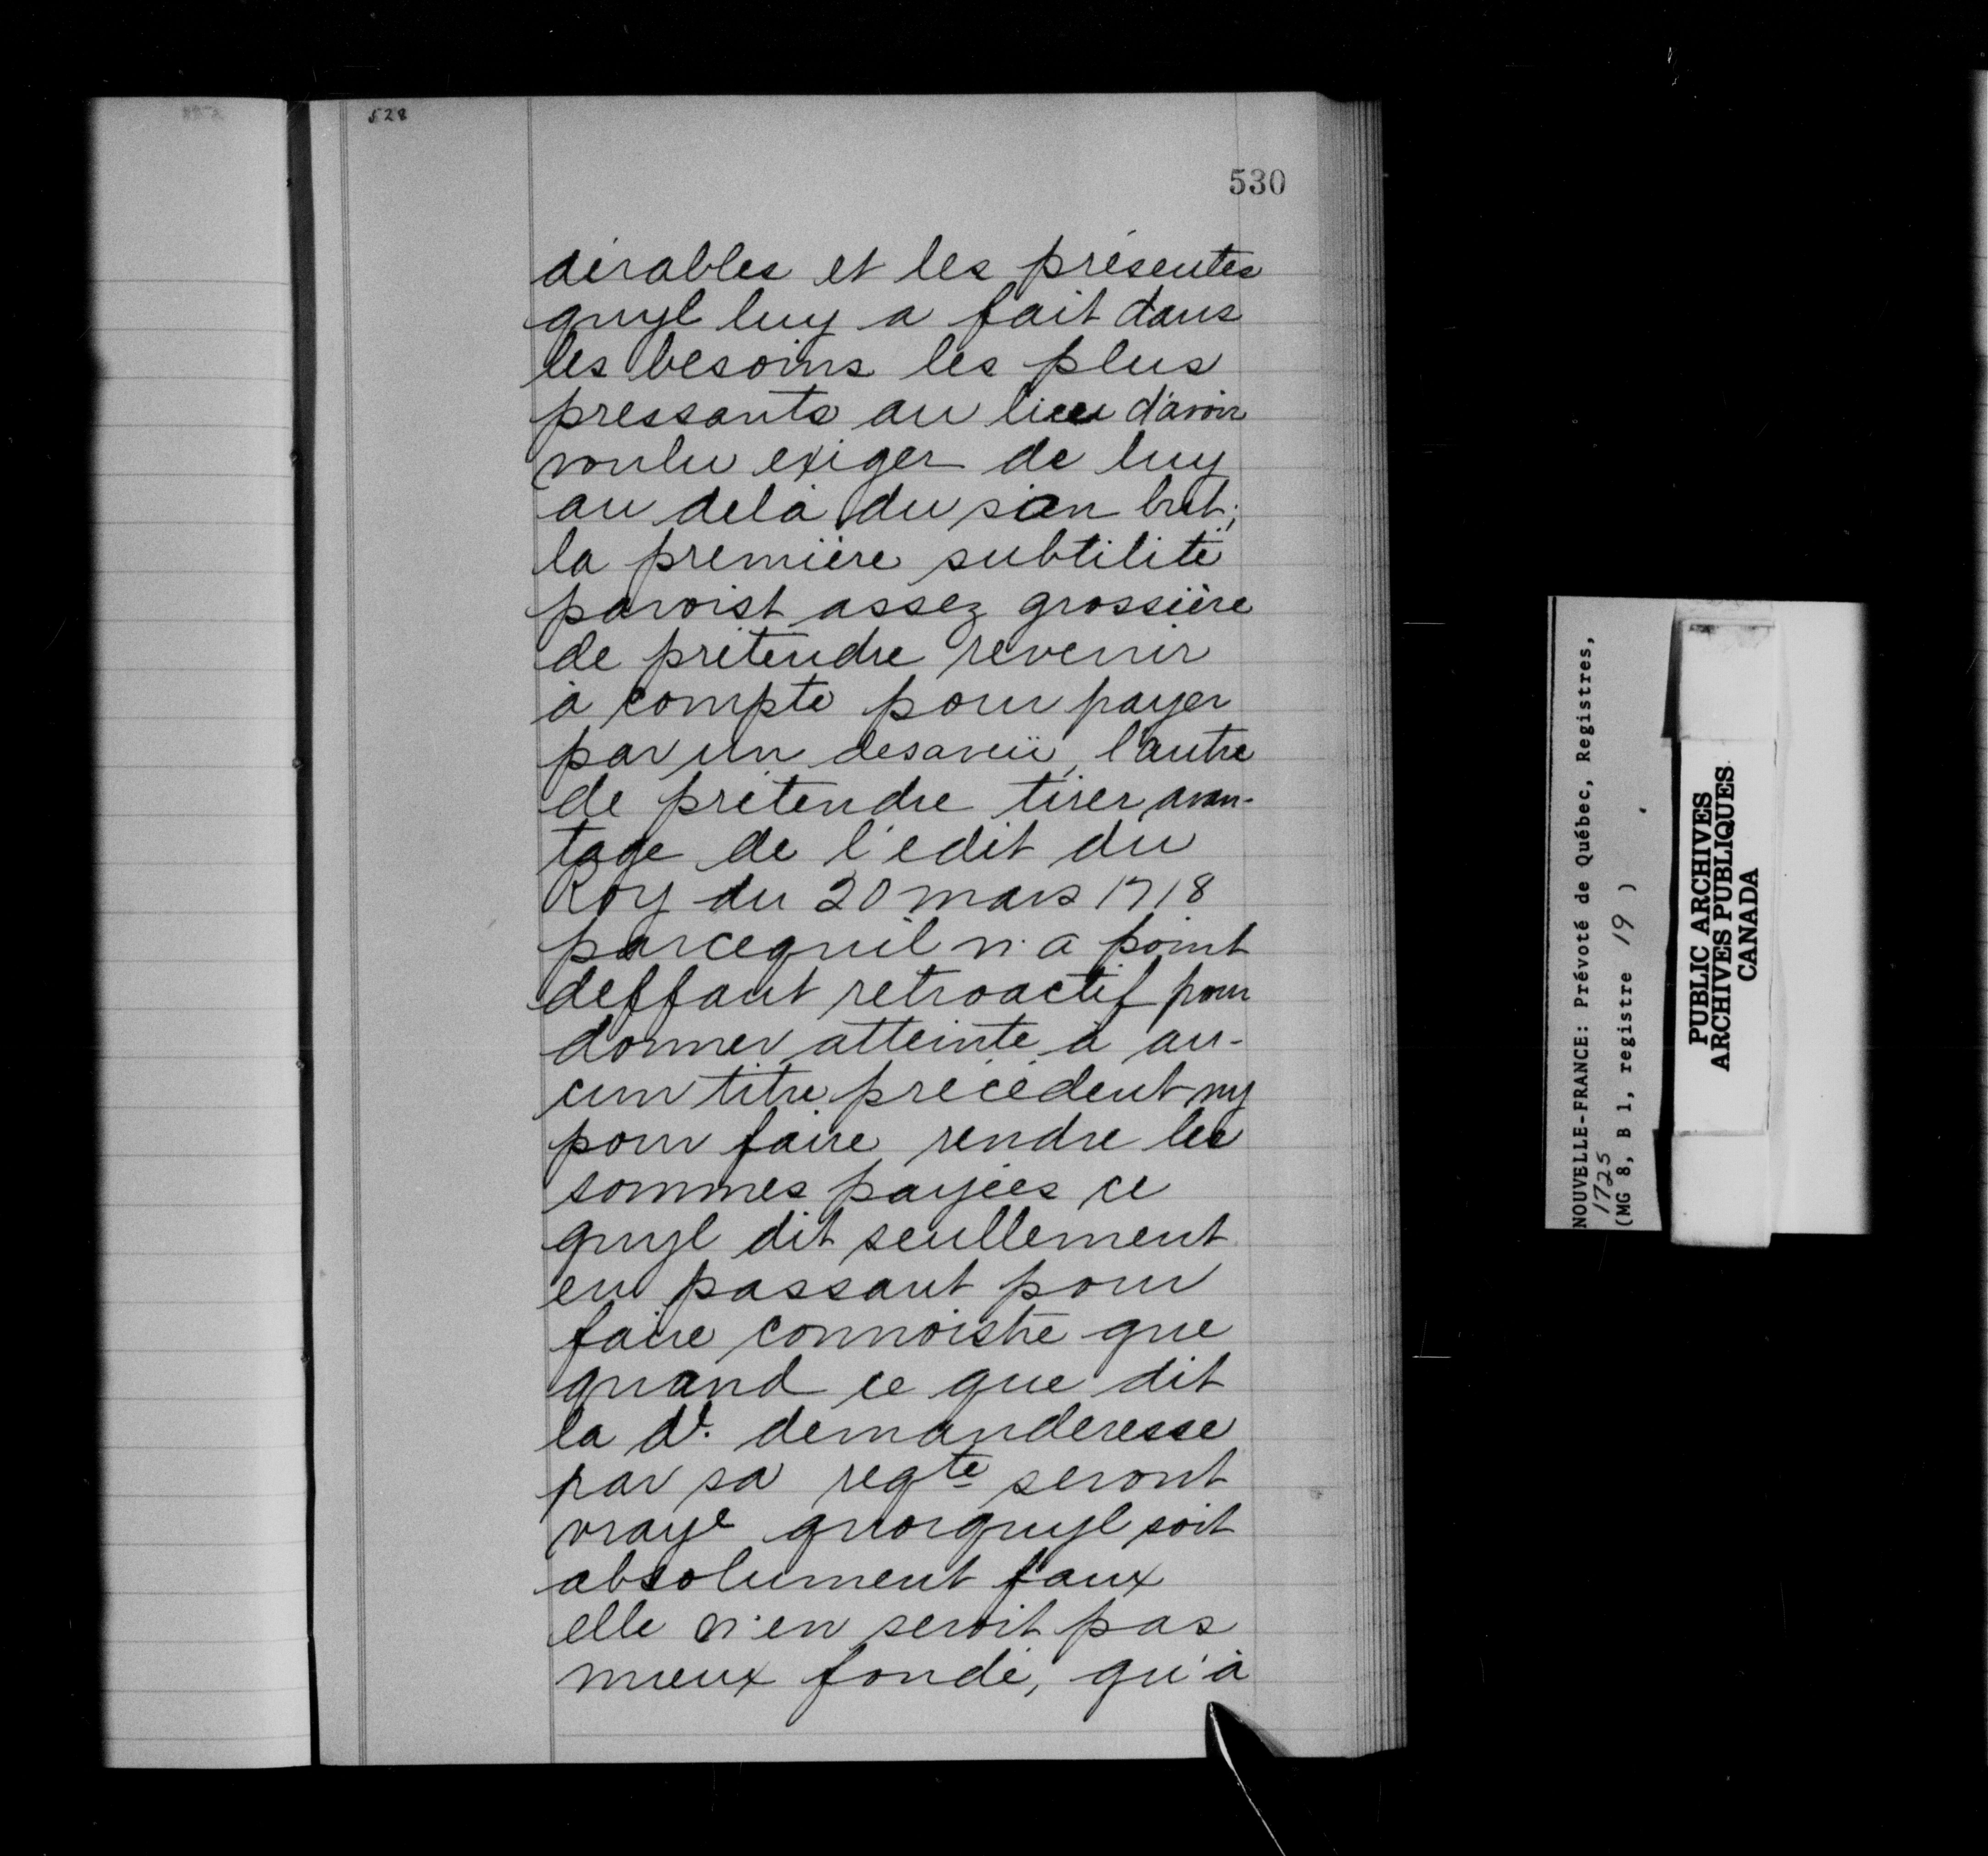 528
530
dérables et les présentes
quyl luy a fait dans
les besoins les plus
pressants au lieu d'avoir
voulu exiger de luy
au delà du sien but;
la première subtilité
paroist assez grossière
de prétendre revenir
à compte pour payer
par un desaveü, l'autre
de prétendre tirer avan-
tage de l'edit du
Roy du 20 mars 1718
parcequil n'a point
deffaut retroactif pour
donner atteinte à au-
cun titre précédent ny
pour faire rendre les
sommes payées ce
quyl dit seullement
en passant pour
faire connoistre que
quand ce que dit
la de. demanderesse
par sa reqte seront
vraye quoiquyl soit
absolument faux
elle n'en seroit pas
mieux fondé, qu'à
NOUVELLE-FRANCE: Prévoté de Québec, Registres,
1725
(MG 8, B 1, registre 19 )
PUBLIC ARCHIVES
ARCHIVES PUBLIQUES
CANADA